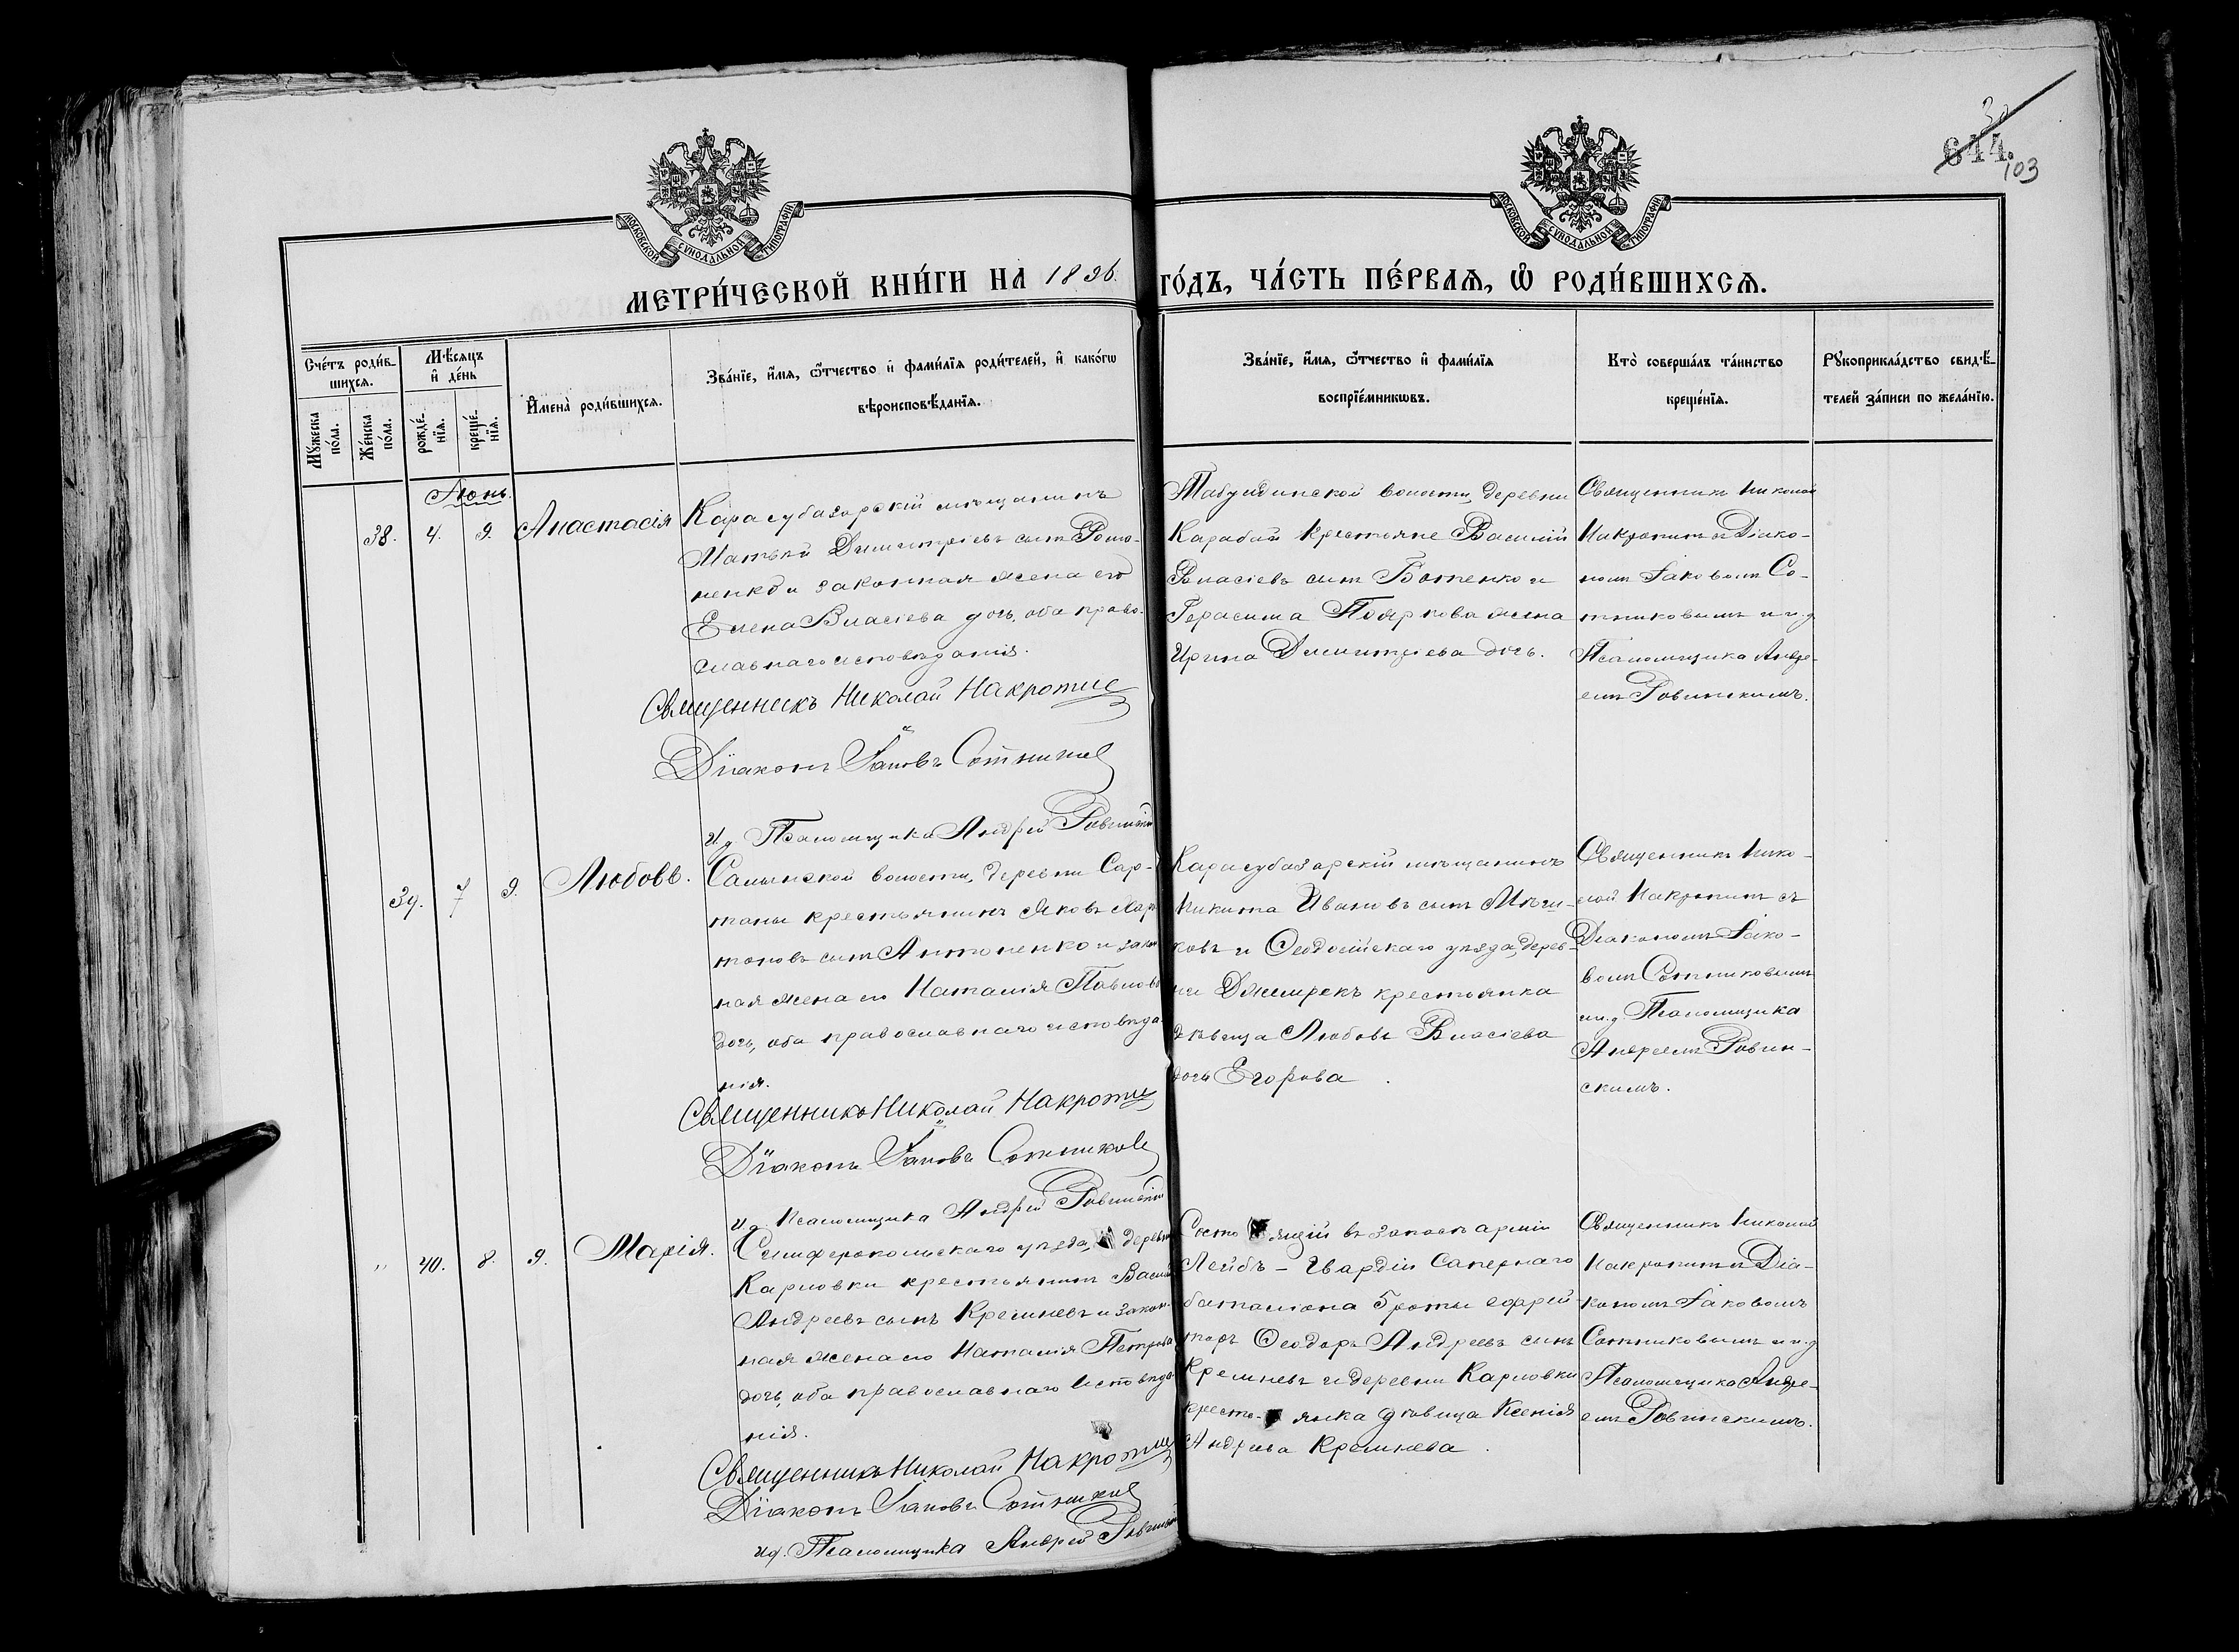 644.
103
МОСКОВСКОЙ СУНОДАЛЬНОЙ ТИПОГРАФІИ
МОСКОВСКОЙ СУНОДАЛЬНОЙ ТИПОГРАФІИ
МЕТРИ́ЧЕСКОЙ КНИ́ГИ НА 1896.
ГО́ДЪ, ЧА́СТЬ ПЕ́РВАѦ, Ѡ҆ РОДИ́ВШИХСѦ.
Сче́тъ роди́в-
шихсѧ.
Мꙋ́жеска
по́ла.
Же́нска
по́ла.
Мѣ́сѧцъ
и҆ де́нь
рожде́-
нїѧ.
креще́-
нїѧ.
И҆мена̀ роди́вшихсѧ.
Зва́нїе, и҆́мѧ, ѻ҆́тчество и҆ фами́лїѧ роди́телей, и҆ како́гѡ
вѣроисповѣ́данїѧ.
Зва́нїе, и҆́мѧ, ѻ҆́тчество и҆ фами́лїѧ
воспрїе́мникѡвъ.
Кто̀ соверша́лъ та́инство
креще́нїѧ.
Рꙋкоприкла́дство свидѣ́-
телей за́писи по жела́нїю.
Іюнь.
38. 4. 9. Анастасія
Карасубазарскій мѣщанинъ
Матѳей Димитріевъ сынъ Рома-
ненко и законная жена его
Елена Власіева дочь, оба право-
славнаго исповѣданія.
Священникъ Николай Накропин
Діаконъ Іаковъ Сотников
И д Псаломщика Андрей Ровинскій
Табулдинской волости, деревни
Карабай крестьяне Василій
Власіевъ сынъ Ботенко и
Герасима Пояркова жена
Ирина Димитріева дочь.
Священникъ Николай
Накропинъ и Діако-
номъ Іаковомъ Со-
тниковымъ и и.д.
Псаломщика Андре-
емъ Ровинскимъ.
39. 7 9. Любовь.
Салынской волости, деревни Сар-
таны крестьянинъ Яковъ Хари-
тоновъ сынъ Антоненко и закон
ная жена его Наталія Павлова
дочь, оба православнаго исповѣда-
нія.
Священникъ Николай Накропин
Діаконъ Іаковъ Сотников
И д. Псаломщика Андрей Ровинскій
Карасубазарскій мѣщанинъ
Никита Ивановъ сынъ
и Ѳеодосійскаго уѣзда, дерев-
ни крестьянка
дѣвица Любовь Власіева
дочь Егорова.
Священникъ Нико-
лай Накропинъ съ
Діакономъ Іако-
вомъ Сотниковымъ
и и.д. Псаломщика
Андреемъ Ровин-
скимъ.
" 40. 8. 9. Марія.
Симферопольскаго уѣзда, деревни
Карловки крестьянинъ Василій
Андреевъ сынъ Кремневъ и закон-
ная жена его Наталія Петрова
дочь, оба православнаго исповѣда-
нія.
Священникъ Николай Накропин
Діаконъ Іаковъ Сотников
ид. Псаломщика Андрей Ровинскій
Состоящій въ запасѣ арміи
Лейбъ-Гвардіи Сапернаго
баталіона 5 роты ефрей-
торъ Ѳеодоръ Андреевъ сынъ
Кремневъ и деревни Карловки
кресть-янка дѣвица Ксенія
Андреева Кремнева.
Священникъ Николай
Накропинъ и Діа-
кономъ Іаковомъ
Сотниковымъ и и.д
Псаломщика Андре-
емъ Ровинскимъ.